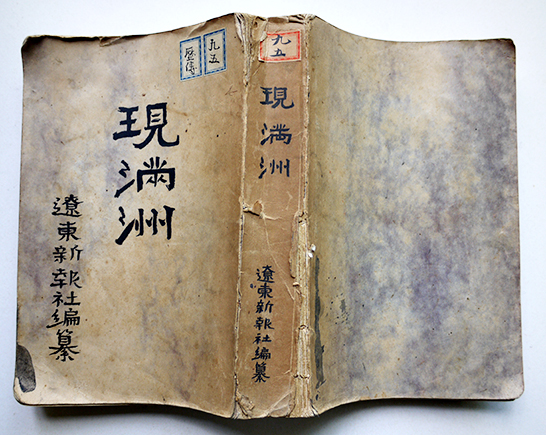 九五
歴傳
現満洲
遼東新報社編纂
九五
現満洲
遼東新報社編纂